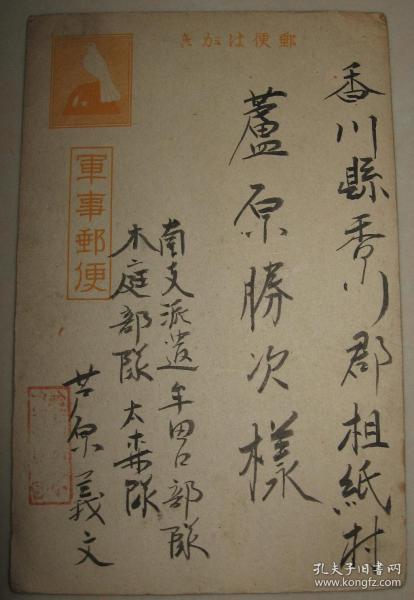 郵便はがき
軍事郵便
香川縣香川郡檀紙村
蘆原勝次様
南支派遣牟田口部隊
木庭部隊大森隊
芦原義文
孔夫子旧书网
www.kongfz.com